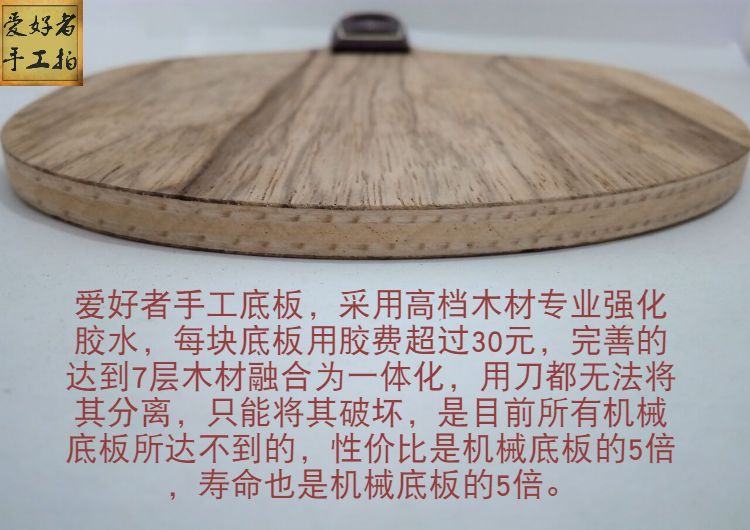 爱好者
手工拍
爱好者手工底板，采用高档木材专业强化
胶水，每块底板用胶费超过30元，完善的
达到7层木材融合为一体化，用刀都无法将
其分离，只能将其破坏，是目前所有机械
底板所达不到的，性价比是机械底板的5倍
，寿命也是机械底板的5倍。